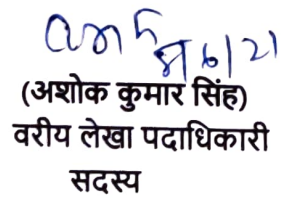 (अशोक कुमार सिंह)
वरीय लेखा पदाधिकारी
सदस्य